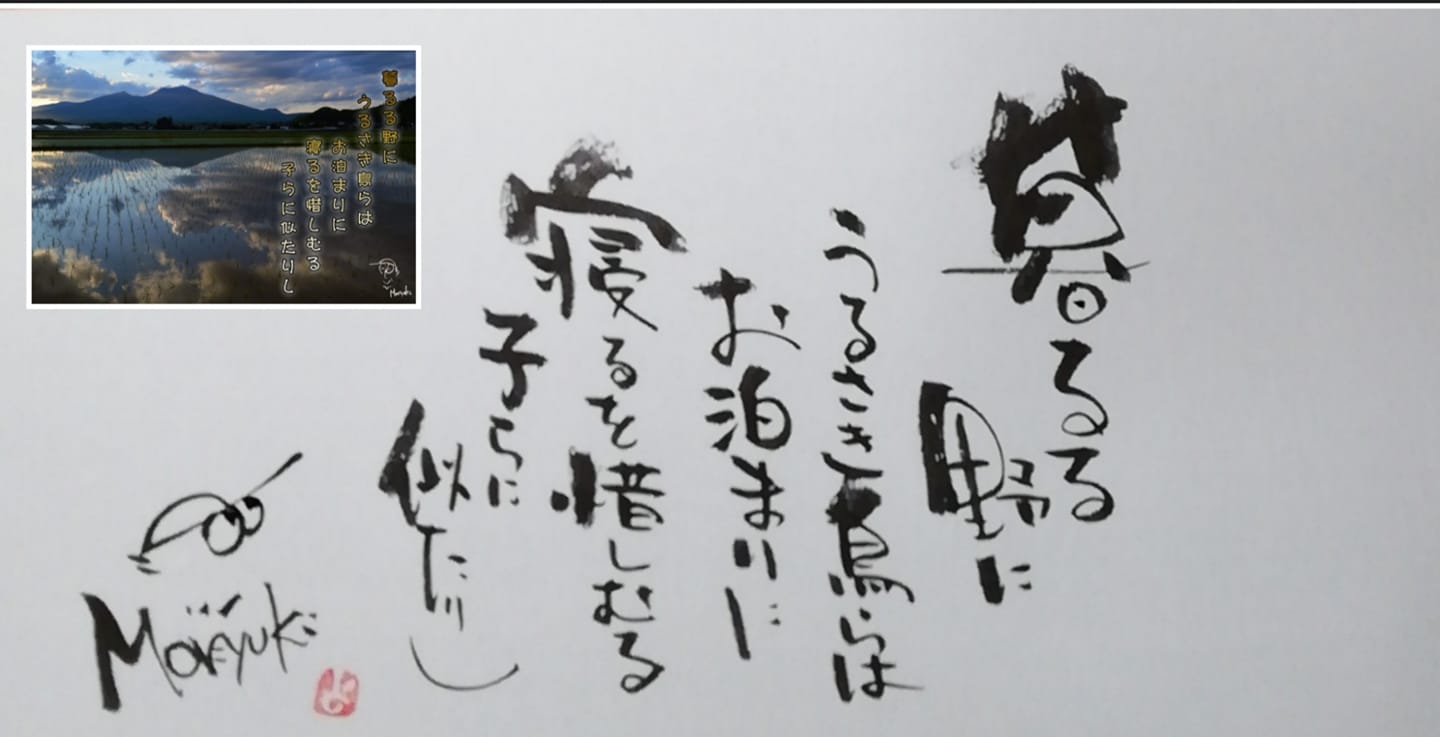 暮るる野に
うるさき鳥らは
お泊まりに
寝るを惜しむる
子らに似たりし
Moriyuki
暮るる野に
うるさき鳥らは
お泊まりに
寝るを惜しむる
子らに似たりし